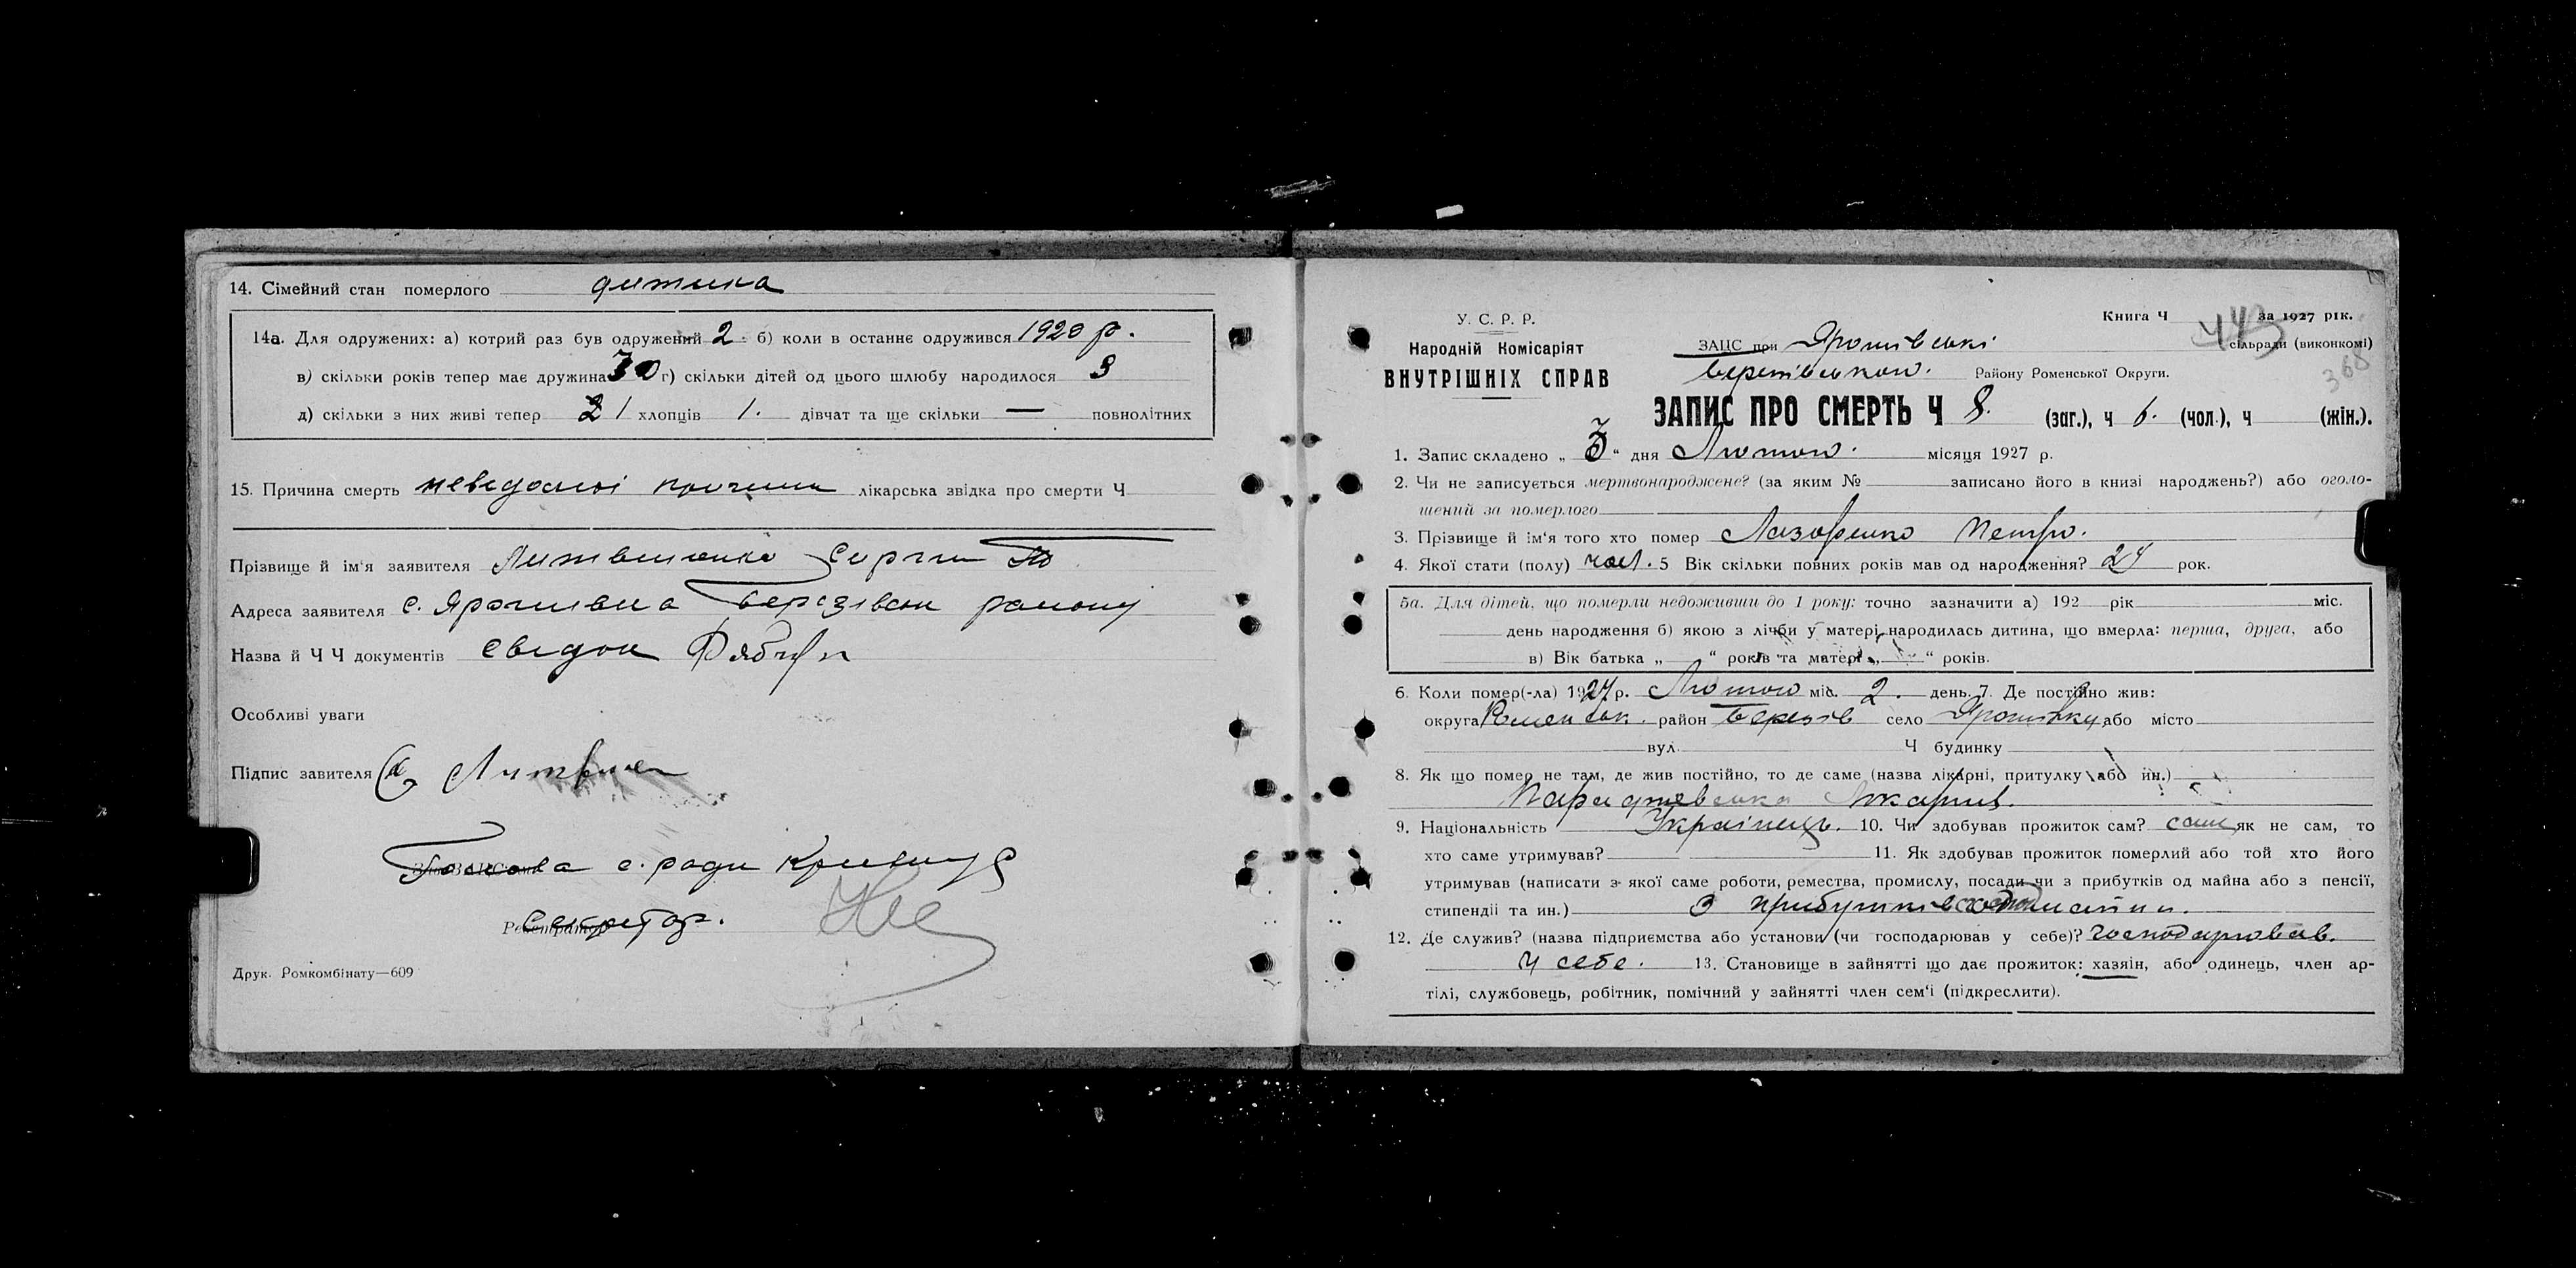 14. Сімейний стан померлого дитина
14а. Для одружених: а) котрий раз був одружений 2 б) коли в останнє одружився 1920 р.
в) скільки років тепер має дружина 30 г) скільки дітей од цього шлюбу народилося 3
д) скільки з них живі тепер 2 1 хлопців 1. дівчат та ще скільки — повнолітних
15. Причина смерть невідомої причини лікарська звідка про смерти Ч
Прізвище й ім'я заявителя Литвиненко
Адреса заявителя с. Ярошивка Березівськ району
Назва й Ч Ч документів свідок
Особливі уваги
Підпис завителя
Голова с. ради
Секретар.
Друк. Ромкомбінату—609
Книга Ч 443 за 1927 рік.
368
У. С. Р. Р.
Народній Комісаріят
ВНУТРІШНІХ СПРАВ
ЗАЦС при Ярошівські сільради (виконкомі)
Району Роменської Округи.
ЗАПИС ПРО СМЕРТЬ Ч 8. (заг.), ч 6. (чол.), ч (жін.).
1. Запис складено „ 3 “ дня Лютого. місяця 1927 р.
2. Чи не записується мертвонароджене? (за яким № записано його в книзі народжень?) або оголо-
шений за померлого
3. Прізвище й ім'я того хто помер Лазоренко Петро.
4. Якої стати (полу) чол. 5 Вік скільки повних років мав од народження? рок.
5а. Для дітей, що померли недоживши до 1 року: точно зазначити а) 192 рік міс.
день народження б) якою з лічби у матері народилась дитина, що вмерла: перша, друга, або
в) Вік батька „ “ років та матері „ “ років.
6. Коли помер(-ла) 1927 р. Лютого міс. 2. день. 7. Де постійно жив:
округа Роменськ. район Березів село Ярошівку або місто
вул. Ч будинку
8. Як що помер не там, де жив постійно, то де саме (назва лікарні, притулку або ин.)
9. Національність Українець. 10. Чи здобував прожиток сам? сам як не сам, то
хто саме утримував? 11. Як здобував прожиток померлий або той хто його
утримував (написати з якої саме роботи, ремества, промислу, посади чи з прибутків од майна або з пенсії,
стипендії та ин.) З прибутків
12. Де служив? (назва підприємства або установи (чи господарював у себе)? господарював.
у себе. 13. Становище в зайнятті що дає прожиток: хазяін, або одинець, член ар-
тілі, службовець, робітник, помічний у зайнятті член сем'і (підкреслити).